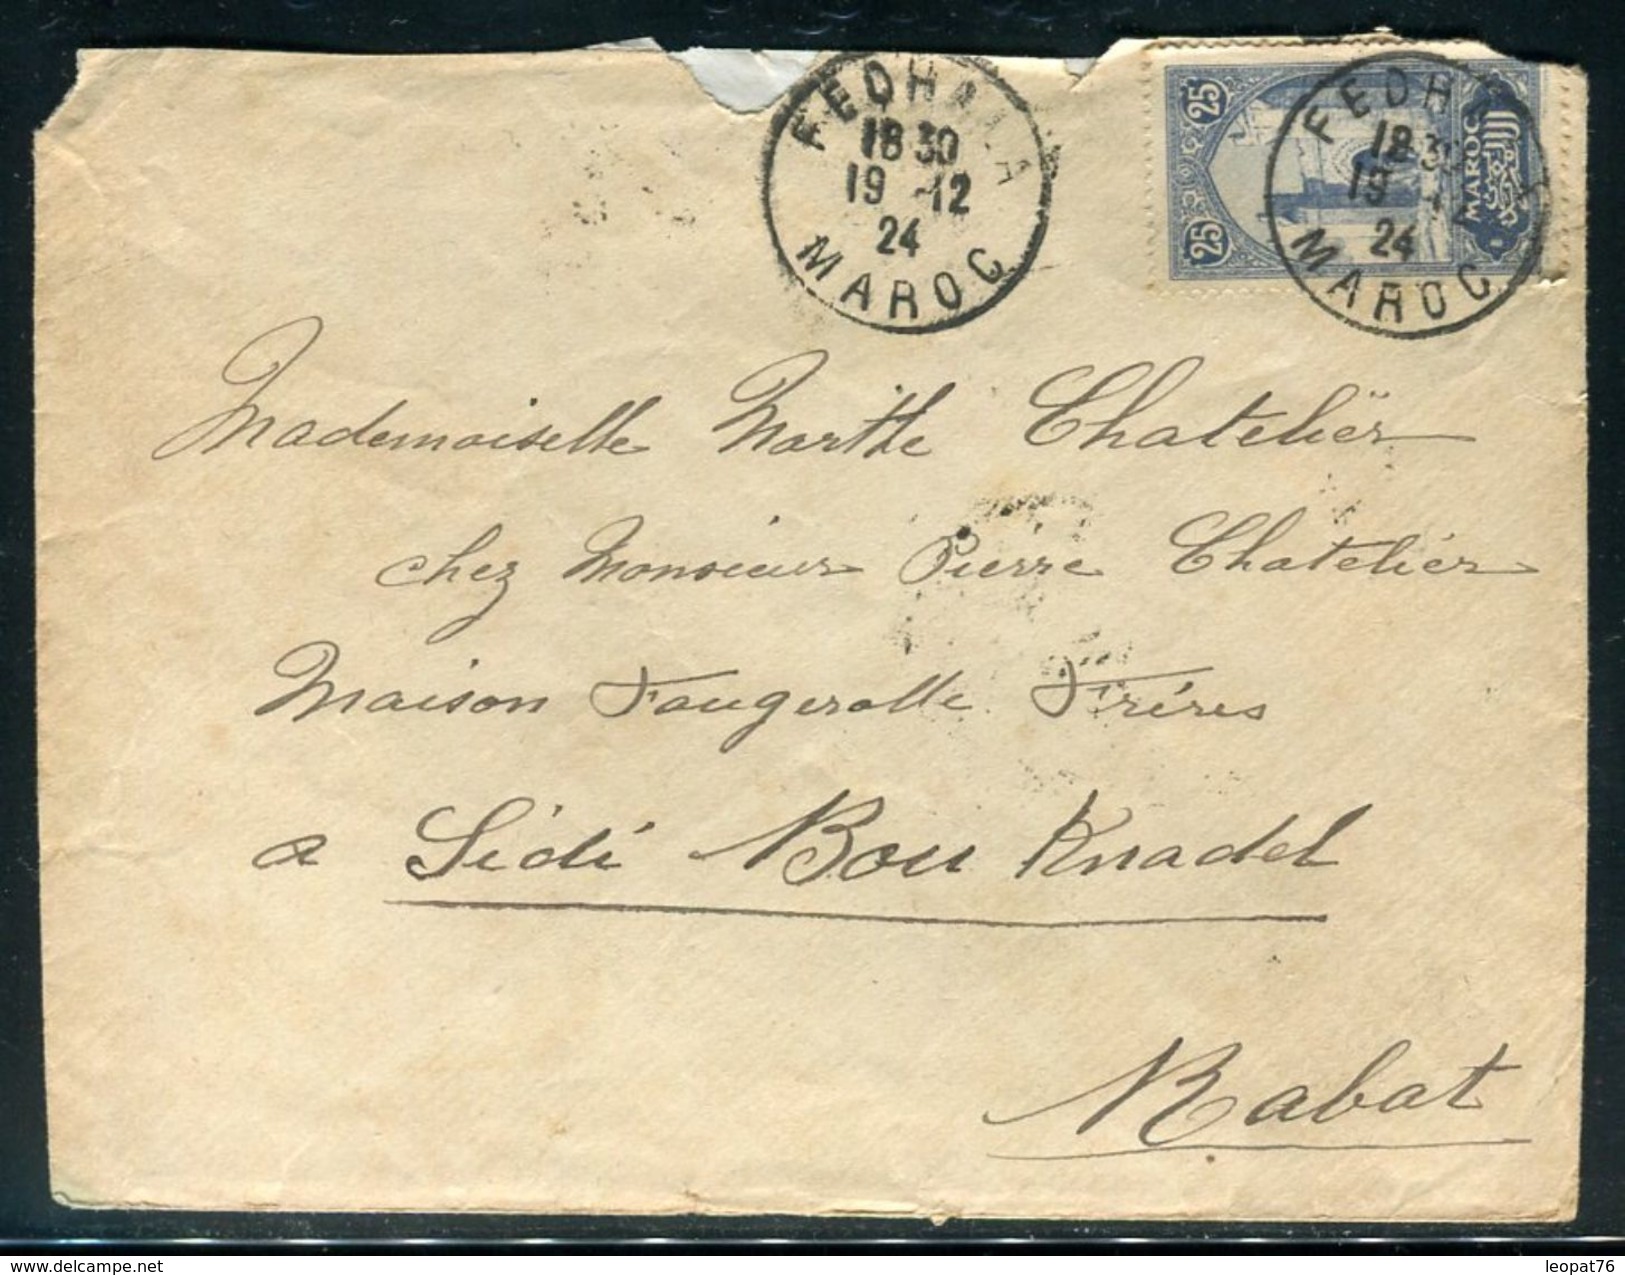 FEDHALA
18 30
19 -12
24
MAROC
25
25
MAROC
FEDHALA
18 30
19 -12
24
MAROC
Mademoiselle Marthe Chateliër
chez Monsieur Pierre Chateliér
Maison Fougerolle Fréres
a Sidi Bou Knadel
Rabat
delcampe.net
leopat76